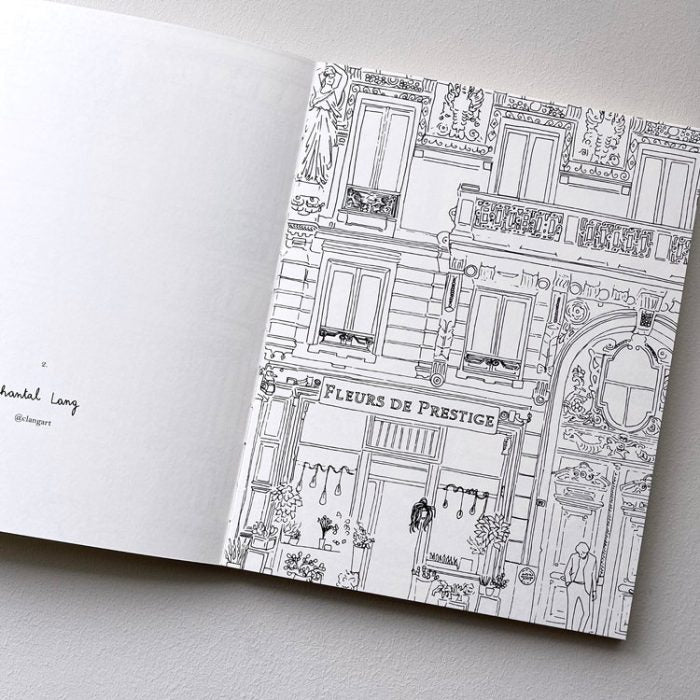 2.
hantal Lang
@clangart
FLEURS DE PRESTIGE